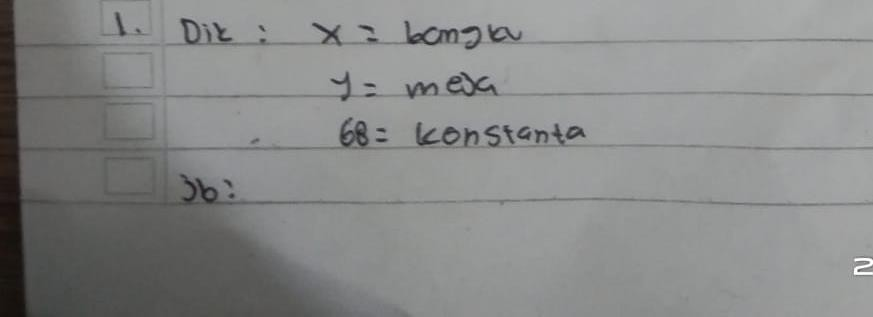 1. Dik : x = bangku
y = meja
68 = konstanta
Jb :
2